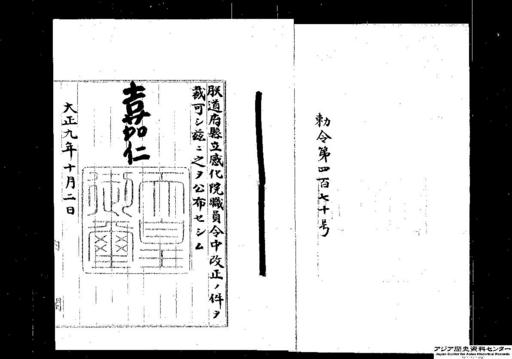 勅令第四百七十号
朕道府縣立感化院職員令中改正ノ件ヲ
裁可シ茲ニ之ヲ公布セシム
嘉仁
天皇御璽
大正九年十月二日
アジア歴史資料センター
Japan Center for Asian Historical Records